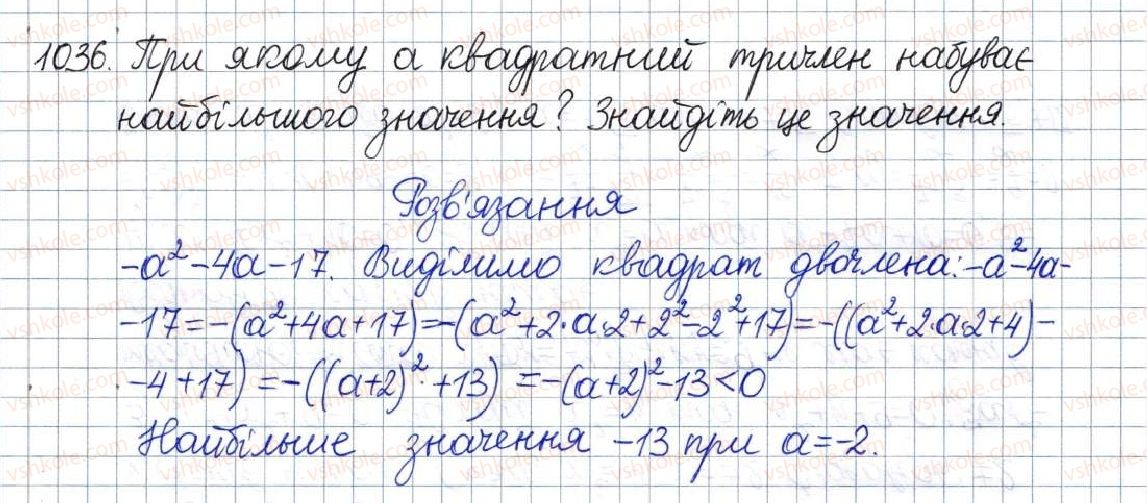 1036. При якому а квадратний тричлен набуває
найбільшого значення? Знайдіть це значення.
Розв'язання
-a²-4a-17. Виділимо квадрат двочлена: -a²-4a-
-17=-(a²+4a+17)=-(a²+2·a·2+2²-2²+17)=-((a²+2·a·2+4)-
-4+17)=-((a+2)²+13)=-(a+2)²-13<0
Найбільше значення -13 при a=-2.